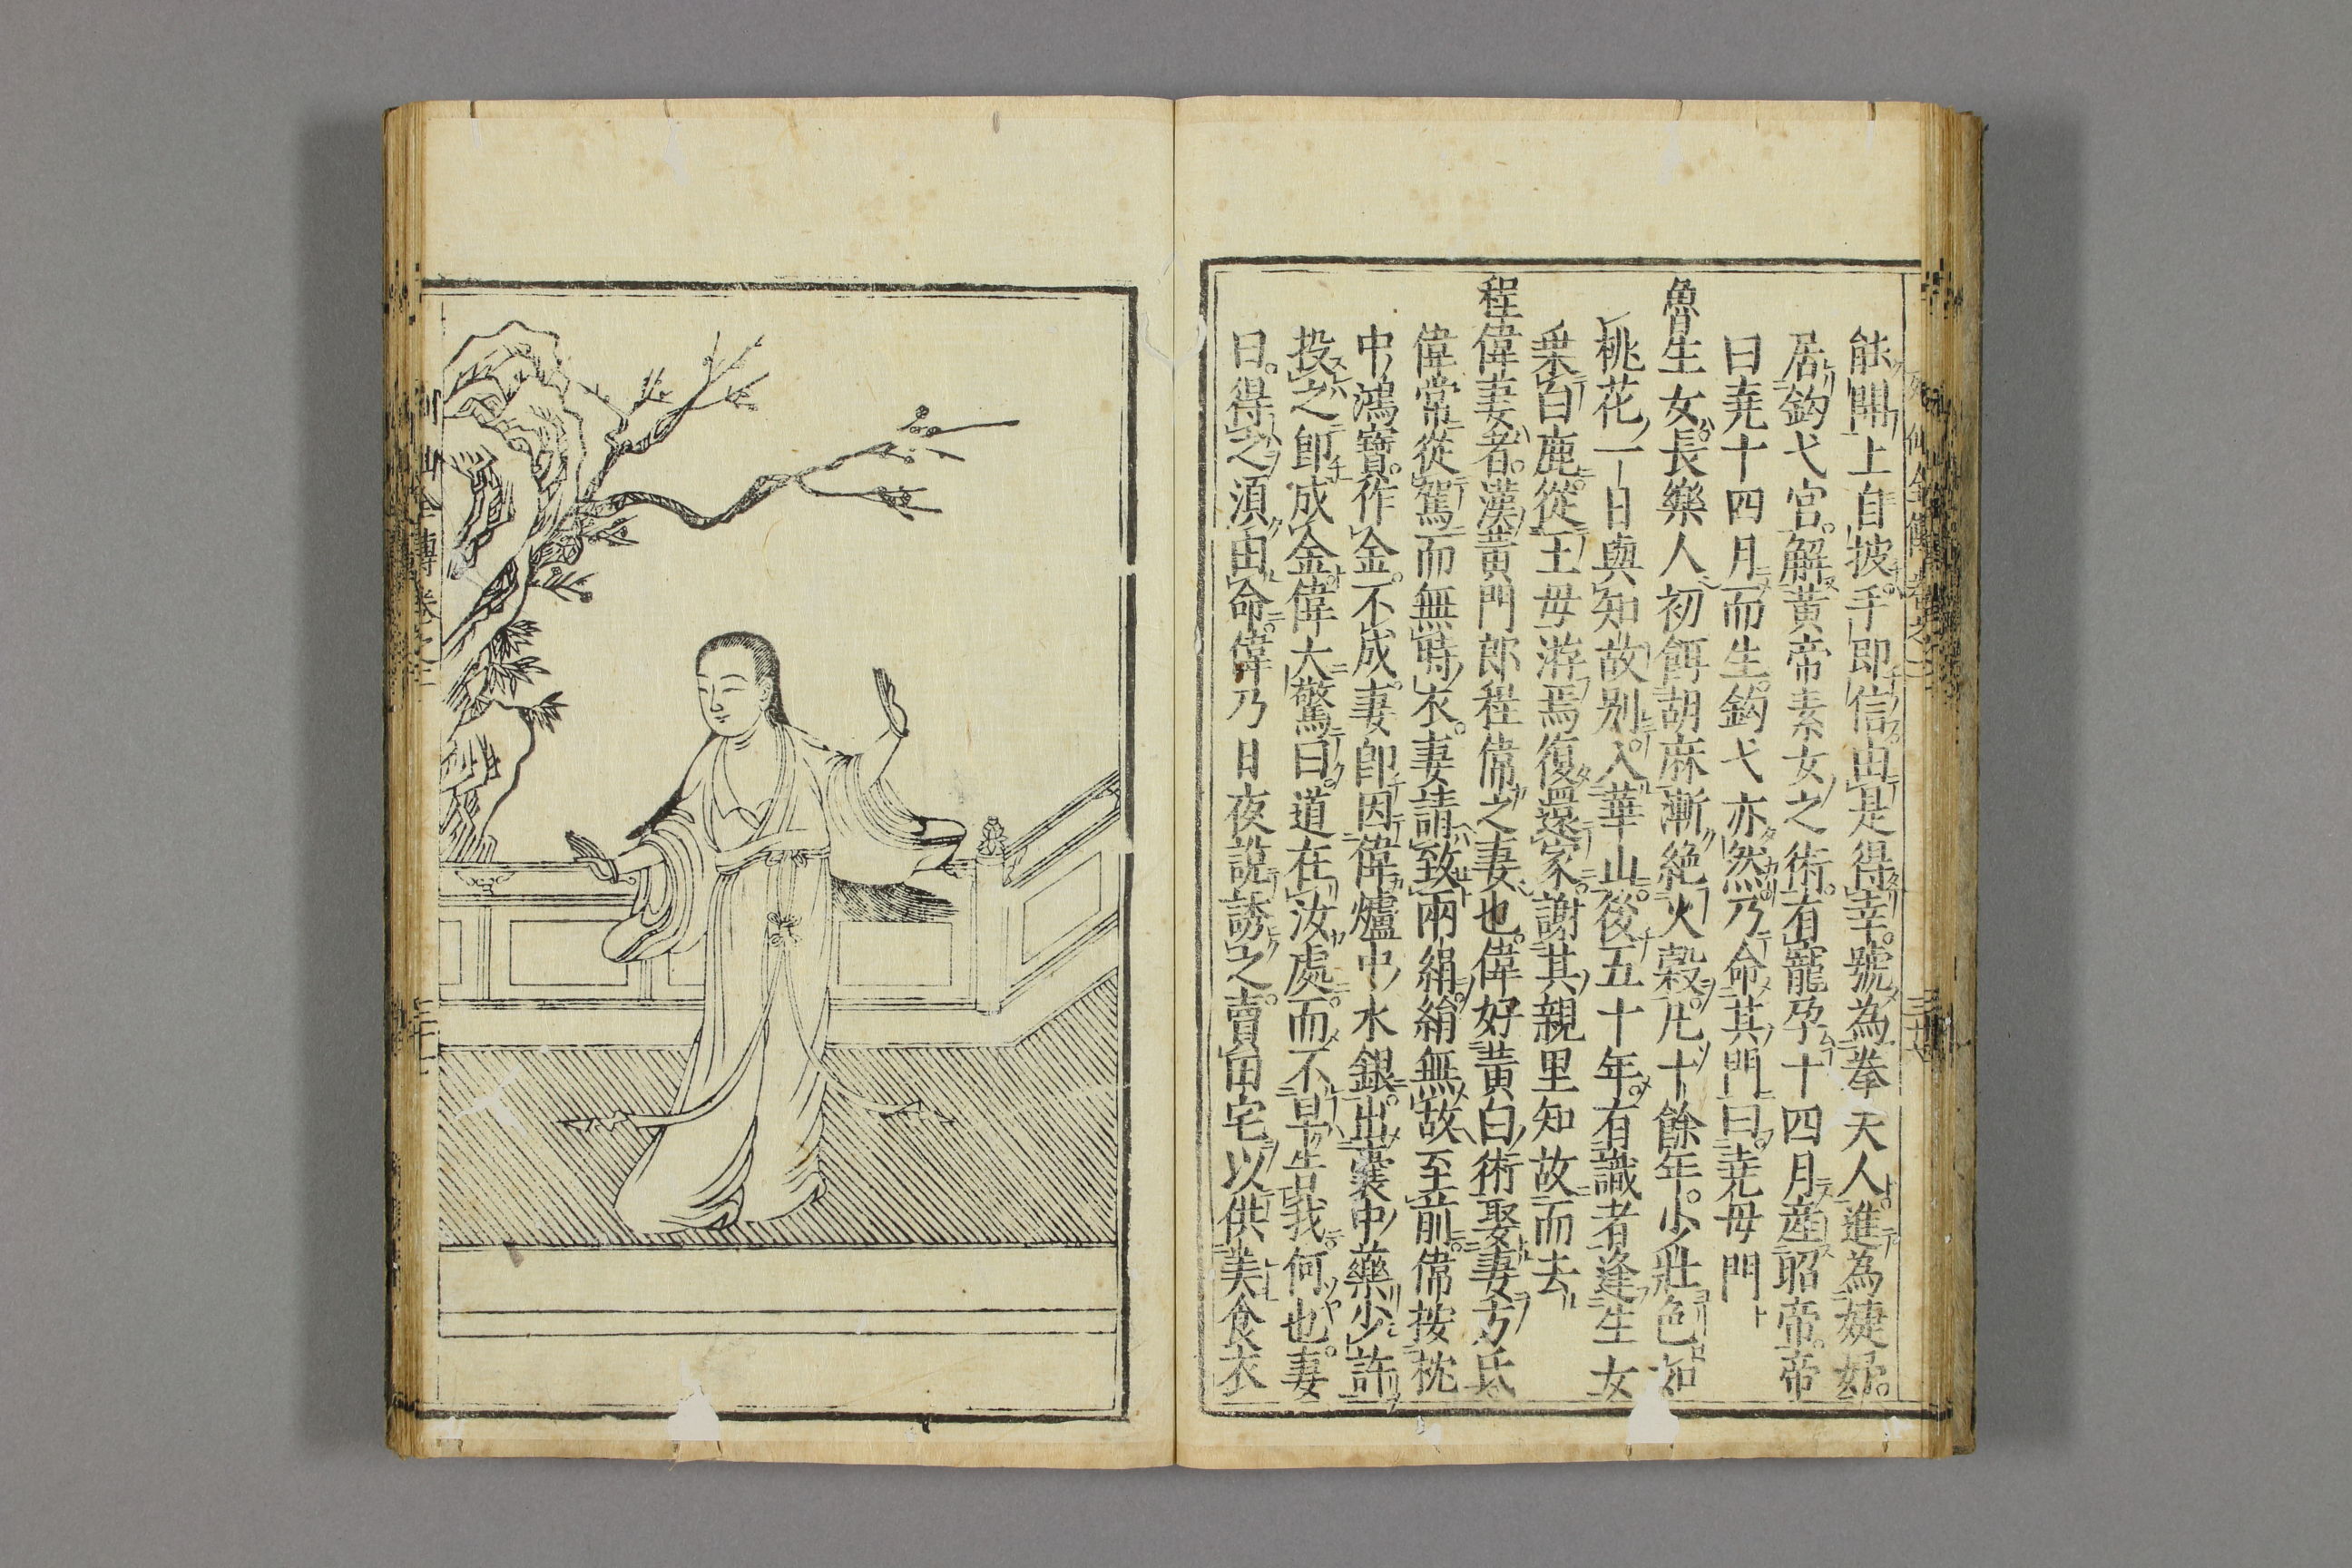 能開上自披手即信由是得幸號為拳夫人進為婕妤
居鈎弋宮解黃帝素女之術有寵孕十四月產昭帝帝
曰堯十四月而生鈎弋亦然乃命其門曰堯母門
魯生女長樂人初餌胡麻漸絕火穀凡十餘年少壯色如
桃花一日與知故別入華山後五十年有識者逢生女
乗白鹿從王母游焉復還家謝其親里知故而去
程偉妻者漢黃門郎程偉之妻也偉好黃白術娶妻方氏
偉常從駕而無時衣妻請致兩絹絹無故至前偉按枕
中鴻寶作金不成妻即因偉爐中水銀出囊中藥少許
投之即成金偉大驚曰道在汝處而不早告我何也妻
曰得之須由命偉乃日夜說誘之賣田宅以供美食衣
列仙全傳卷之二